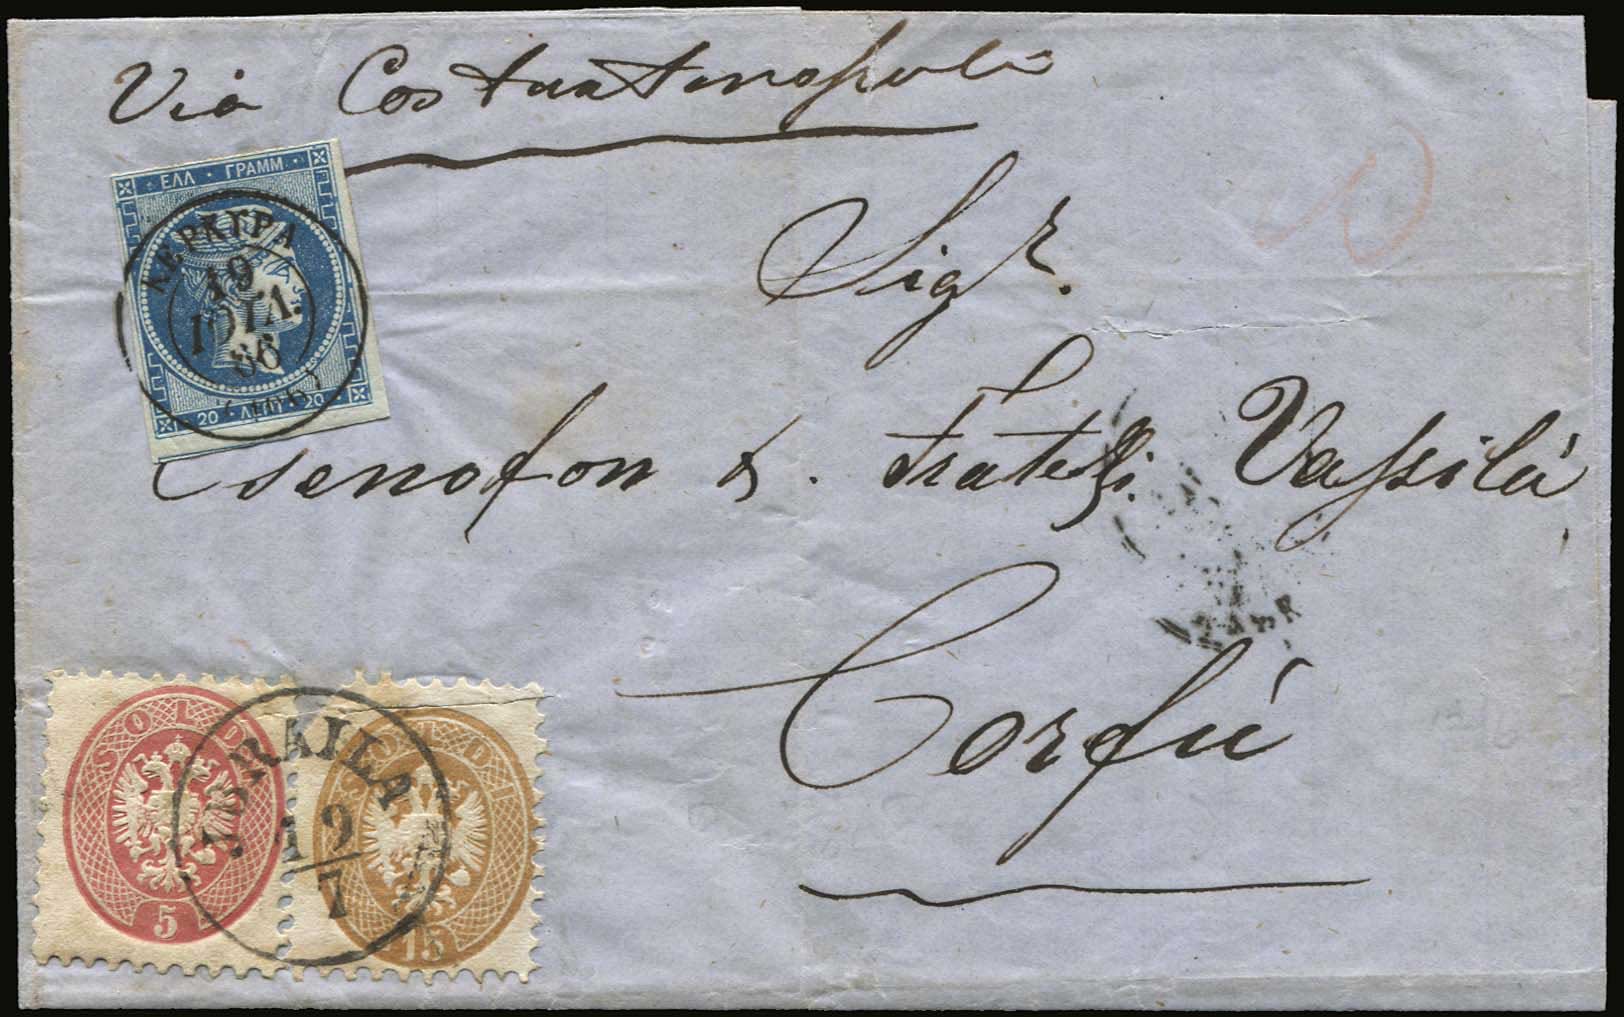 Via Costantinopoli
ΕΛΛ · ΓΡΑΜΜ.
ΚΕΡΚΥΡΑ
19
ΙΟΥΛ.
66
20 ΛΕΠΤ. 20
Sigr.
Csenofon & . Fratelli Vassilá
Corfú
SOLDI
5
SOLDI
15
IBRAILA
19
7